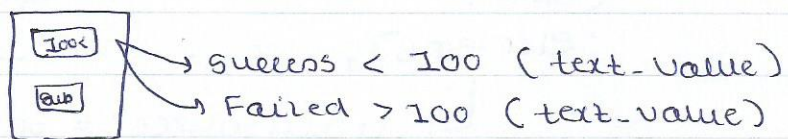 100<
success < 100 (text_value)
sub
Failed > 100 (text_value)